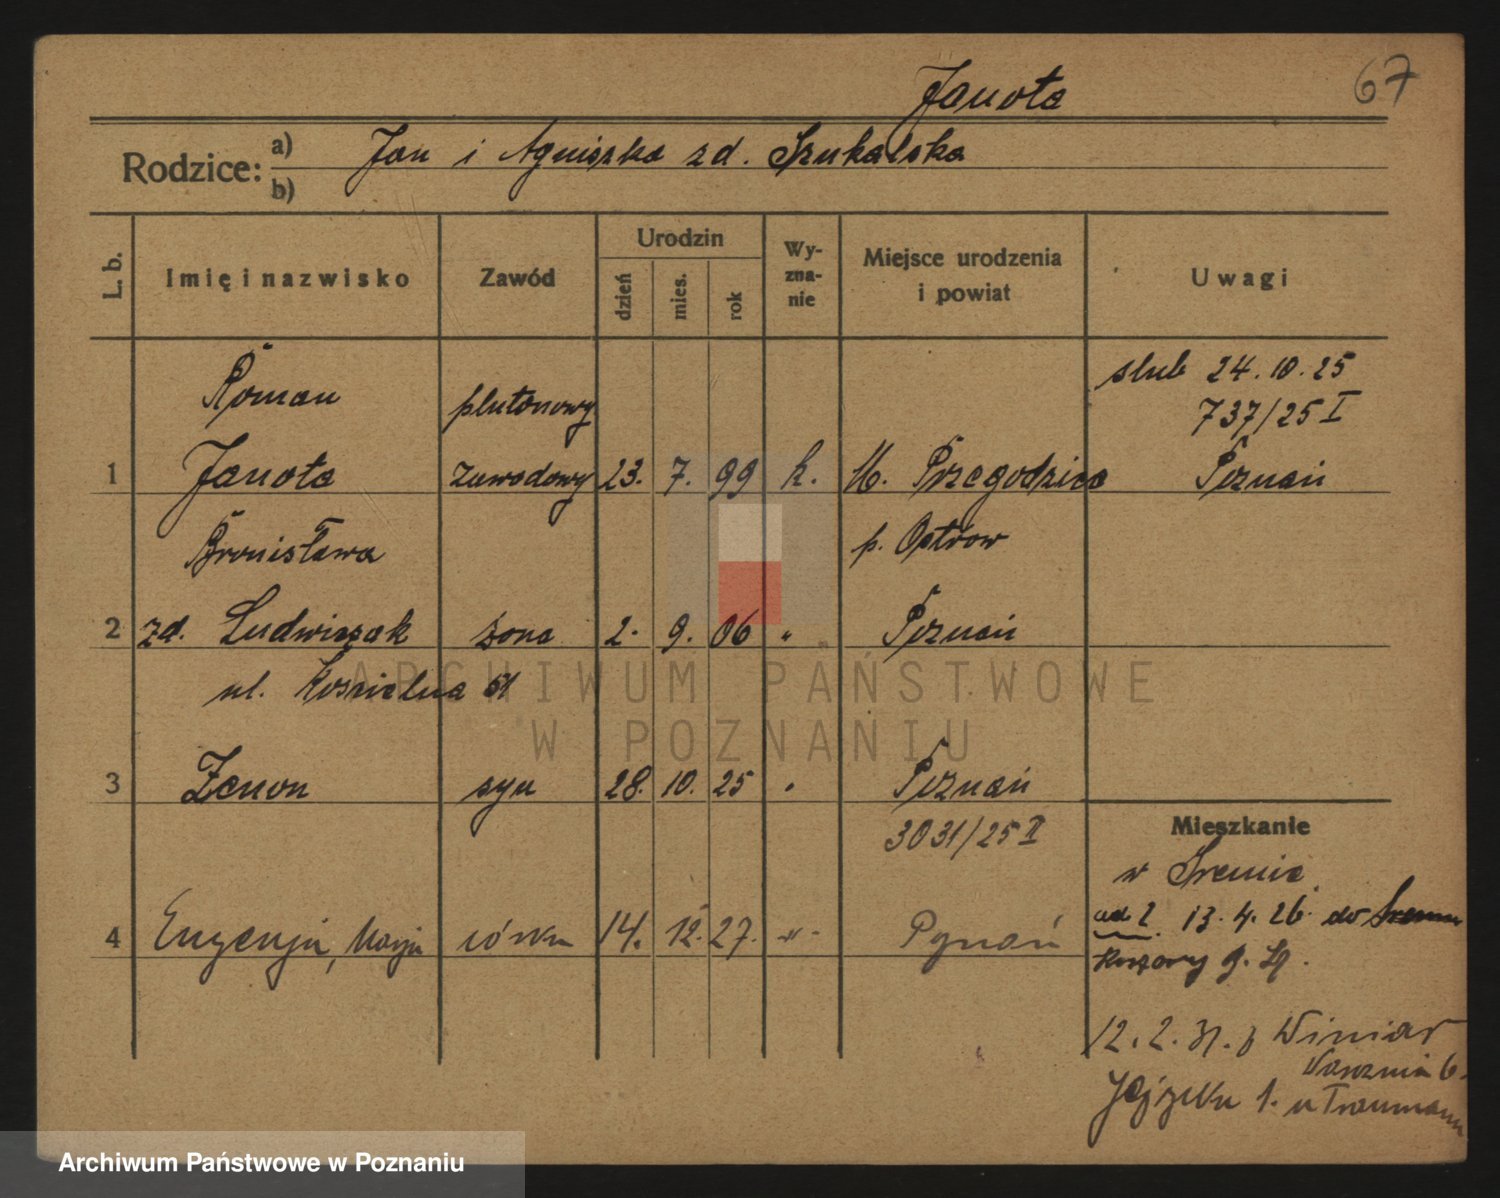 Janota
67
Rodzice: a) Jan i Agnieszka zd. Szukalska
b)
L. b.
Imię i nazwisko
Zawód
Urodzin
dzień
mies.
rok
Wy-
zna-
nie
Miejsce urodzenia
i powiat
Uwagi
Roman
plutonowy
ślub 24.10.25
737/25 I
1 Janota zawodowy 23. 7. 99 k. M. Przegodzice Poznań
Bronisława p. Ostrow
2 zd. Ludwiczak żona 2. 9. 06 " Poznań
ul. Kościelna 51
ARCHIWUM PAŃSTWOWE
W POZNANIU
3 Zenon syn 28. 10. 25 " Poznań
3031/25 II
Mieszkanie
w Śremie
4 Eugenja, Marja córka 14. 12. 27. -"- Poznań
ad. 2 13.4.26. do Śremu
Koszary
12.2.31. z Winiar
1. u Traumann
Archiwum Państwowe w Poznaniu